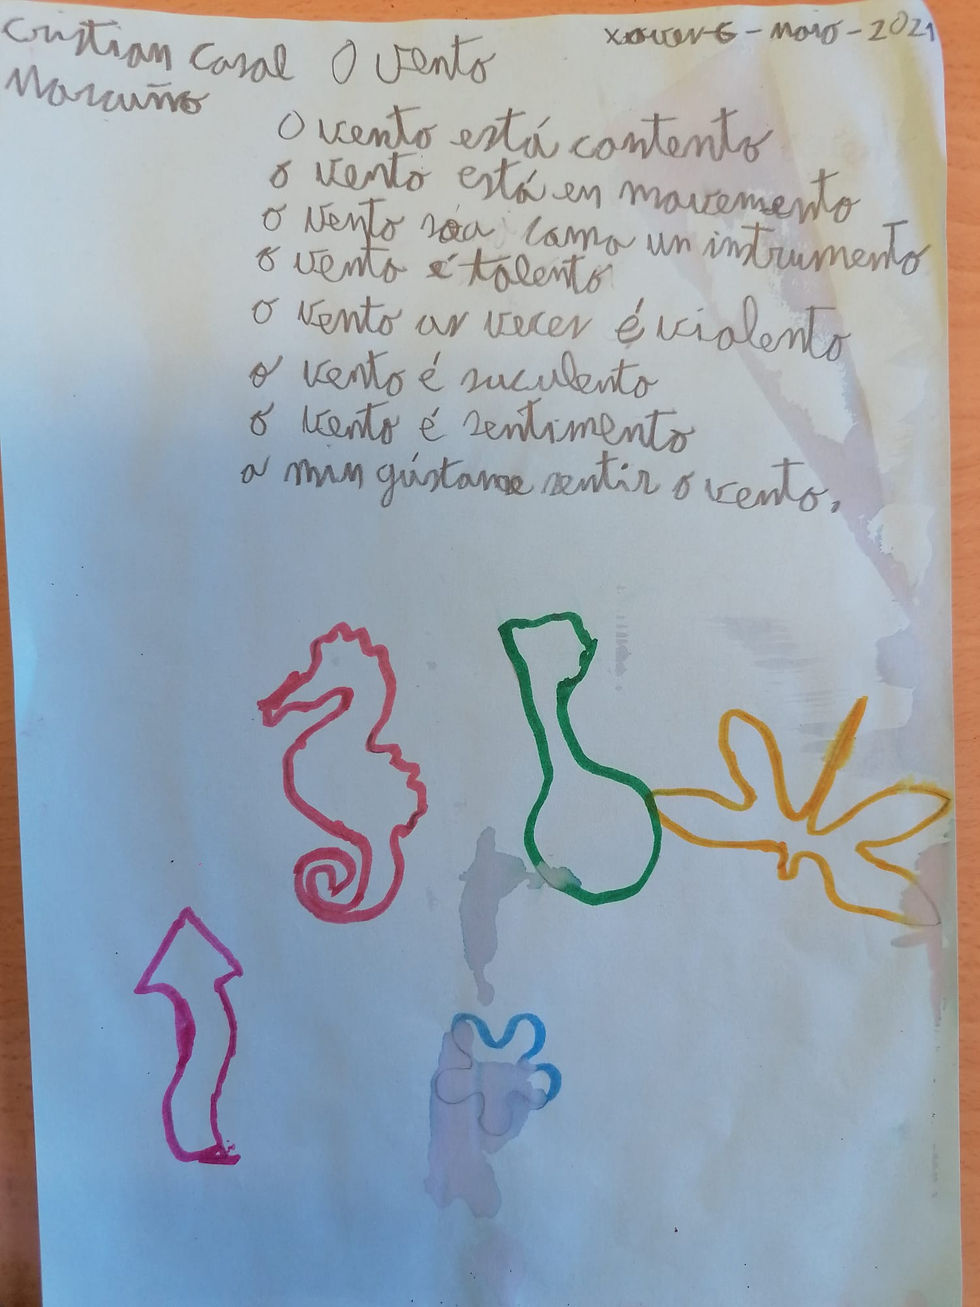 Cristian Casal O vento xoves 6 - maio - 2021
Marcuño
O vento está contento
o vento está en movemento
o vento sóa como un instrumento
o vento é talento
o vento as veces é violento
o vento é suculento
o vento é sentimento
a min gústame sentir o vento.